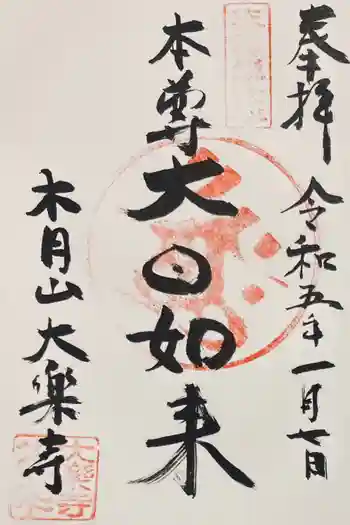 奉拝
令和五年一月七日
本尊
大日如来
木月山
大楽寺